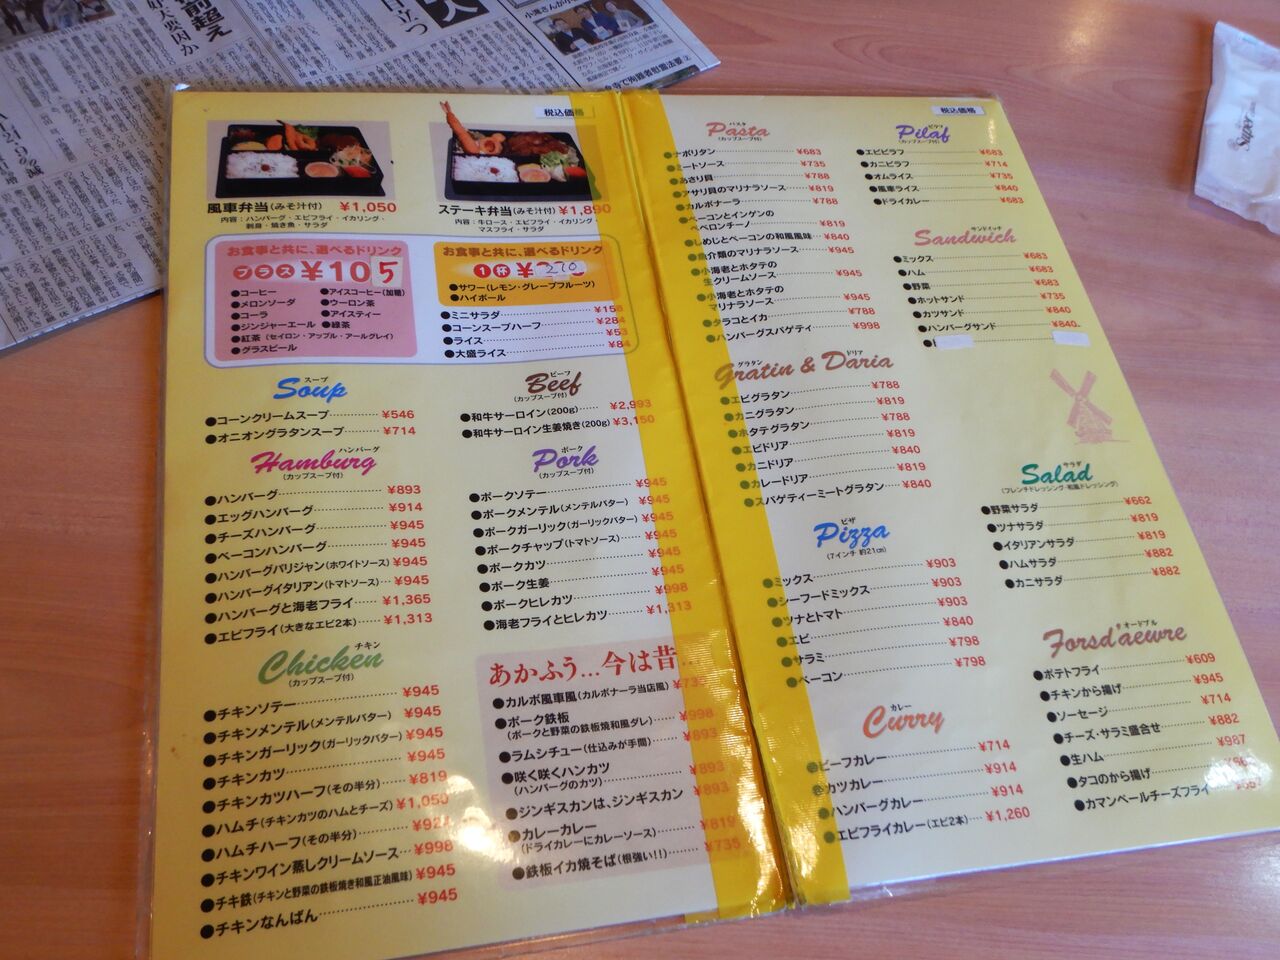 税込価格
風車弁当(みそ汁付) ¥1,050
内容:ハンバーグ・エビフライ・イカリング・
刺身・焼き魚・サラダ
ステーキ弁当(みそ汁付) ¥1,890
内容:牛ロース・エビフライ・イカリング・
マスフライ・サラダ
お食事と共に、選べるドリンク
プラス ¥105
●コーヒー
●メロンソーダ
●コーラ
●ジンジャーエール
●紅茶(セイロン・アップル・アールグレイ)
●グラスビール
●アイスコーヒー(加糖)
●ウーロン茶
●アイスティー
●緑茶
お食事と共に、選べるドリンク
1杯 ¥270
●サワー(レモン・グレープフルーツ)
●ハイボール
●ミニサラダ ¥158
●コーンスープハーフ ¥284
●ライス ¥53
●大盛ライス ¥84
スープ
Soup
●コーンクリームスープ ¥546
●オニオングラタンスープ ¥714
ハンバーグ
Hamburg
(カップスープ付)
●ハンバーグ ¥893
●エッグハンバーグ ¥914
●チーズハンバーグ ¥945
●ベーコンハンバーグ ¥945
●ハンバーグパリジャン(ホワイトソース) ¥945
●ハンバーグイタリアン(トマトソース) ¥945
●ハンバーグと海老フライ ¥1,365
●エビフライ(大きなエビ2本) ¥1,313
チキン
Chicken
(カップスープ付)
●チキンソテー ¥945
●チキンメンテル(メンテルバター) ¥945
●チキンガーリック(ガーリックバター) ¥945
●チキンカツ ¥945
●チキンカツハーフ(その半分) ¥819
●ハムチ(チキンカツのハムとチーズ) ¥1,050
●ハムチハーフ(その半分) ¥924
●チキンワイン蒸しクリームソース ¥998
●チキ鉄(チキンと野菜の鉄板焼き和風正油風味) ¥945
●チキンなんばん ¥945
ビーフ
Beef
(カップスープ付)
●和牛サーロイン(200g) ¥2,993
●和牛サーロイン生姜焼き(200g) ¥3,150
ポーク
Pork
(カップスープ付)
●ポークソテー ¥945
●ポークメンテル(メンテルバター) ¥945
●ポークガーリック(ガーリックバター) ¥945
●ポークチャップ(トマトソース) ¥945
●ポークカツ ¥945
●ポーク生姜 ¥945
●ポークヒレカツ ¥998
●海老フライとヒレカツ ¥1,313
あかふう…今は昔…
●カルボ風車風(カルボナーラ当店風)
●ポーク鉄板 ¥998
(ポークと野菜の鉄板焼和風ダレ)
●ラムシチュー(仕込みが手間) ¥893
●咲く咲くハンカツ ¥893
(ハンバーグのカツ)
●ジンギスカンは、ジンギスカン ¥893
●カレーカレー ¥819
(ドライカレーにカレーソース)
●鉄板イカ焼そば(根強い!!) ¥735
税込価格
パスタ
Pasta
(カップスープ付)
●ナポリタン ¥683
●ミートソース ¥735
●あさり貝 ¥788
●アサリ貝のマリナラソース ¥819
●カルボナーラ ¥788
●ベーコンとインゲンの
ペペロンチーノ ¥819
●しめじとベーコンの和風風味 ¥840
●魚介類のマリナラソース ¥945
●小海老とホタテの
生クリームソース ¥945
●小海老とホタテの
マリナラソース ¥945
●タラコとイカ ¥788
●ハンバーグスパゲティ ¥998
グラタン ドリア
Gratin & Daria
●エビグラタン ¥788
●カニグラタン ¥819
●ホタテグラタン ¥788
●エビドリア ¥819
●カニドリア ¥840
●カレードリア ¥819
●スパゲティーミートグラタン ¥840
ピザ
Pizza
(7インチ 約21cm)
●ミックス ¥903
●シーフードミックス ¥903
●ツナとトマト ¥903
●エビ ¥840
●サラミ ¥798
●ベーコン ¥798
カレー
Curry
●ビーフカレー ¥714
●カツカレー ¥914
●ハンバーグカレー ¥914
●エビフライカレー(エビ2本) ¥1,260
ピラフ
Pilaf
(カップスープ付)
●エビピラフ ¥683
●カニピラフ ¥714
●オムライス ¥735
●風車ライス ¥840
●ドライカレー ¥683
サンドイッチ
Sandwich
●ミックス ¥683
●ハム ¥683
●野菜 ¥683
●ホットサンド ¥735
●カツサンド ¥840
●ハンバーグサンド ¥840
サラダ
Salad
(フレンチドレッシング・和風ドレッシング)
●野菜サラダ ¥662
●ツナサラダ ¥819
●イタリアンサラダ ¥819
●ハムサラダ ¥882
●カニサラダ ¥882
オードブル
Forsd'aewre
●ポテトフライ ¥609
●チキンから揚げ ¥945
●ソーセージ ¥714
●チーズ・サラミ盛合せ ¥882
●生ハム ¥987
●タコのから揚げ
●カマンベールチーズフライ
Super